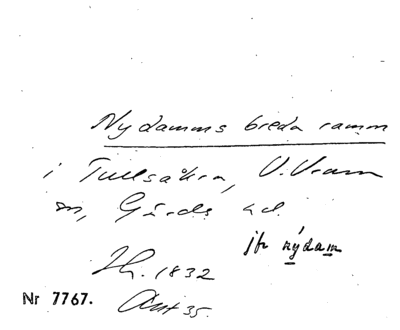 Nydamms breda ramm
i Tullsåkra, V. Vram
sn, Gärds hd.
jfr nýdam
Lh. 1832
Nr 7767. Ant 35.